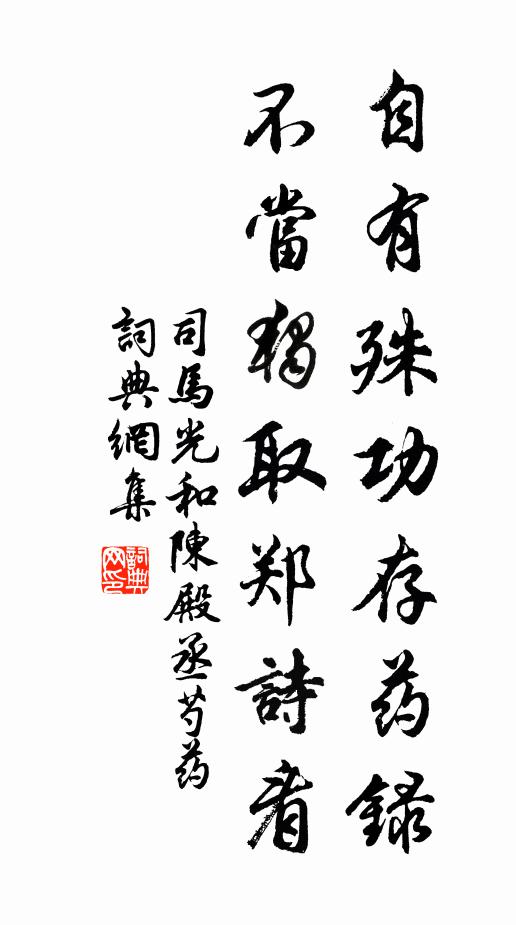 自有殊功存药録
不當獨取郑詩看
司馬光和陳殿丞芍药
詞典網集
詞典网印